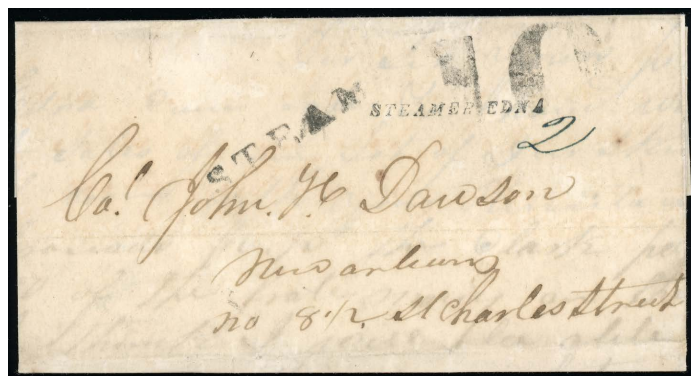 10
STEAM
STEAMER EDNA
2
Col. John. H Dawson
New orleans
no 8 1/2. St Charles Street